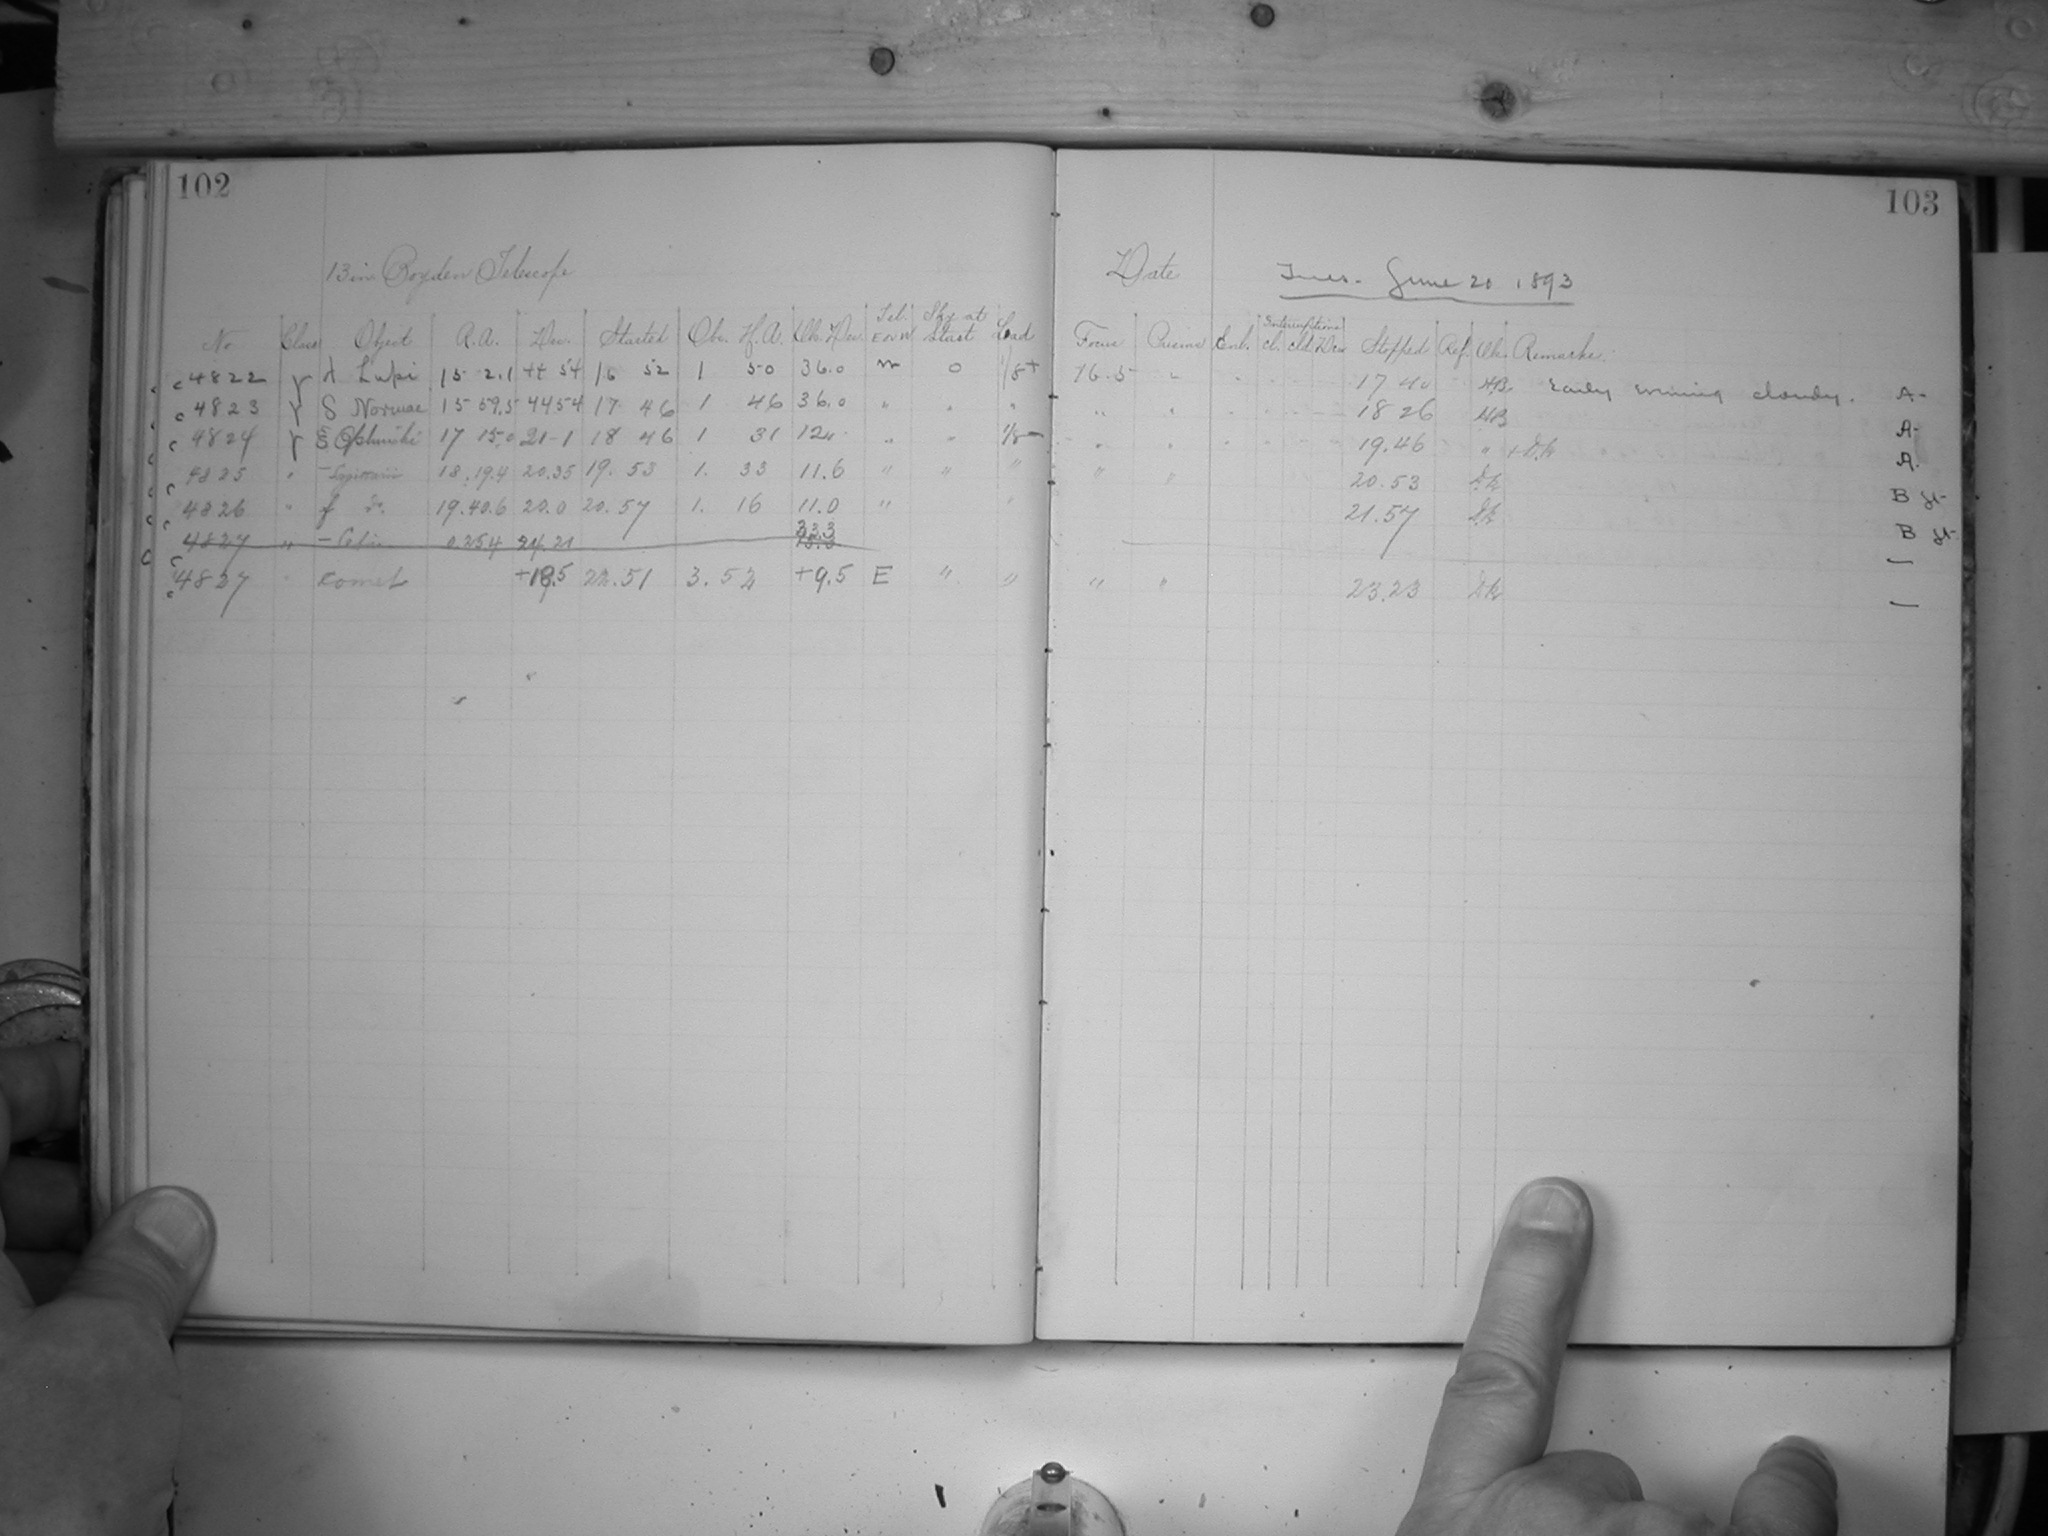 102
13 in Boyden Telescope
No Class Object R.A. Dec. Started Obs. H.A. Obs. Dec. Tel. E or W Sky at Start Lead
c 4822 γ λ Lupi 15 2.1 44 54 16 52 1 50 36.0 W 0 1/8+
c 4823 γ S Normae 15 59.5 44 54 17 46 1 46 36.0 " " "
c 4824 γ ξ Ophiuchi 17 15.0 21-1 18 46 1 31 12 " " 1/8-
c 4825 " - 18.19.4 20.35 19.53 1. 33 11.6 " " "
c 4826 " f Do. 19.40.6 20.0 20.57 1. 16 11.0 " "
4827 " - 0.25.4 24.21 33.3
c 4827 " comet +18.5 22.51 3.52 +9.5 E " "
103
Date Tues. June 20 1893
Focus Prisms Enl. Interruptions cl. cld. Stopped Ref. Obs. Remarks.
16.5 " 17 40 HB. Early evening cloudy. A-
" " 18 26 HB A-
" " 19.46 " A
" " 20.53 B
21.57 B
—
" " 23.23 —